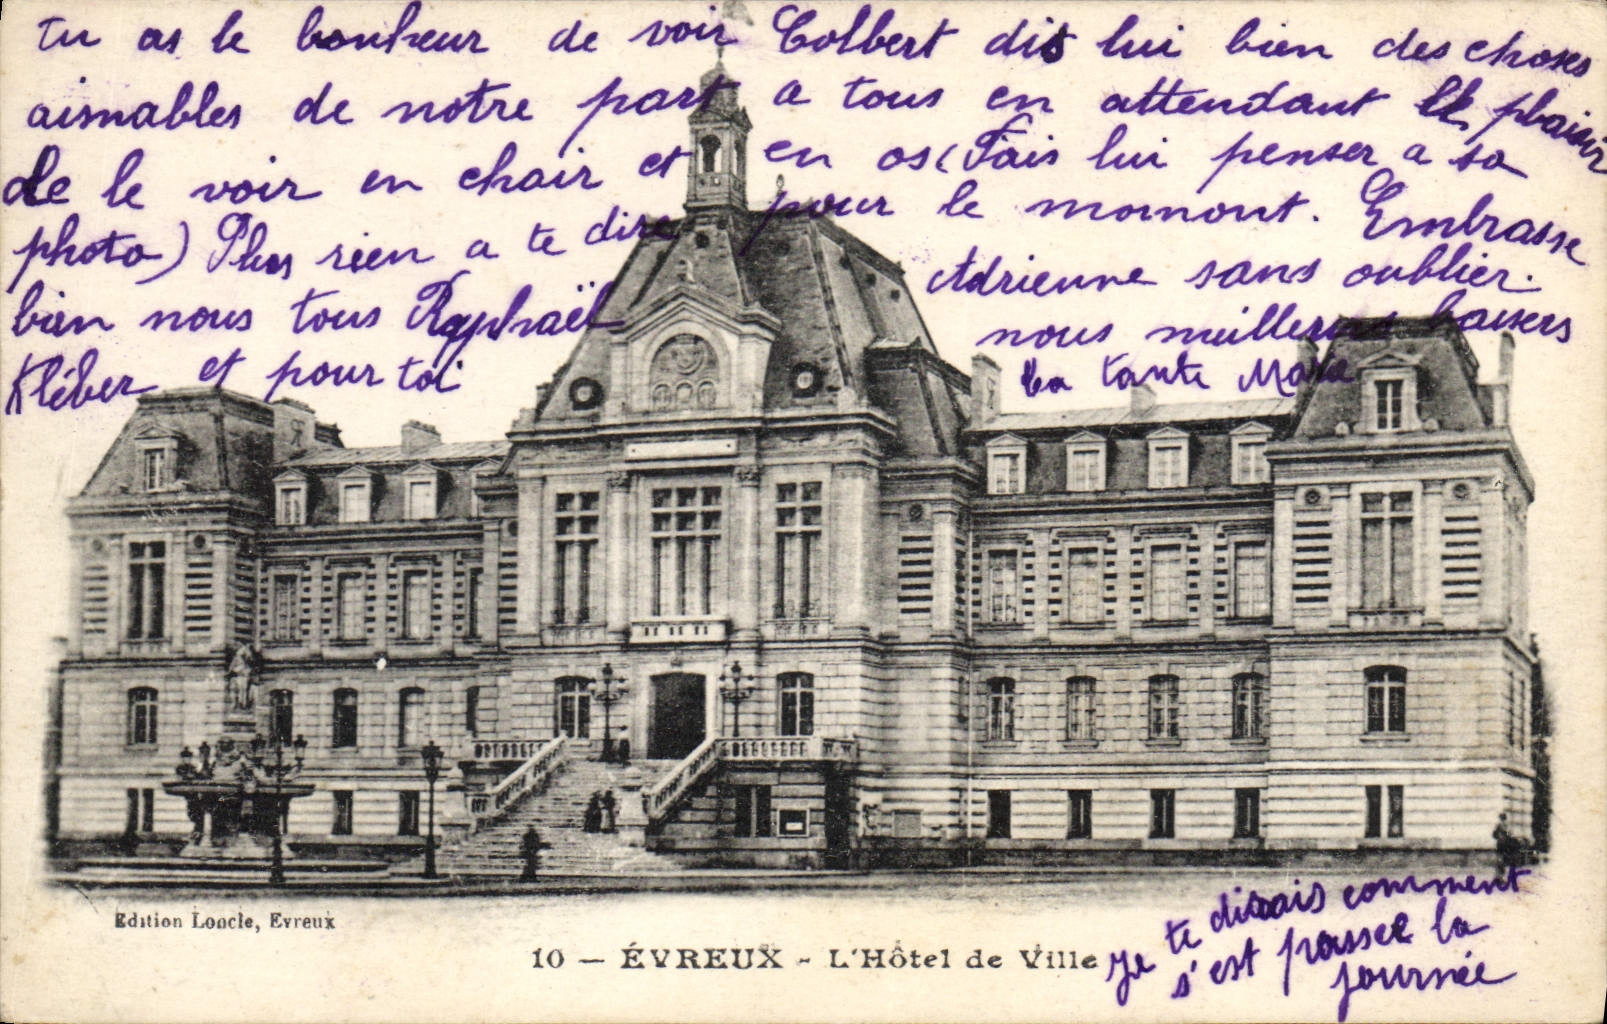 tu as le bonheur de voir Colbert dis lui bien des choses
aimables de notre part a tous en attendant le plaisir
de le voir en chair et en os (Fais lui penser a sa
photo) Plus rien a te dire pour le moment. Embrasse
bien nous tous Raphaël Adrienne sans oublier
Kléber et pour toi nous meilleurs baisers
ta tante
Edition Loncle, Evreux
10 — ÉVREUX - L'Hôtel de Ville
Je te disais comment
s'est passée la
journée